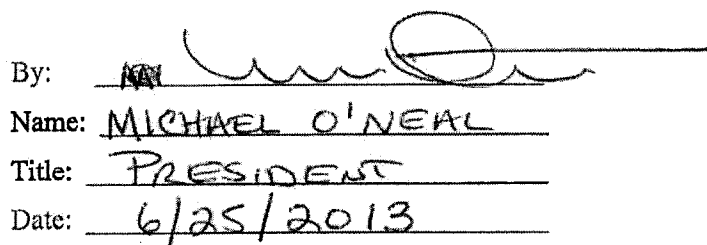 By:
Name: MICHAEL O'NEAL
Title: PRESIDENT
Date: 6/25/2013